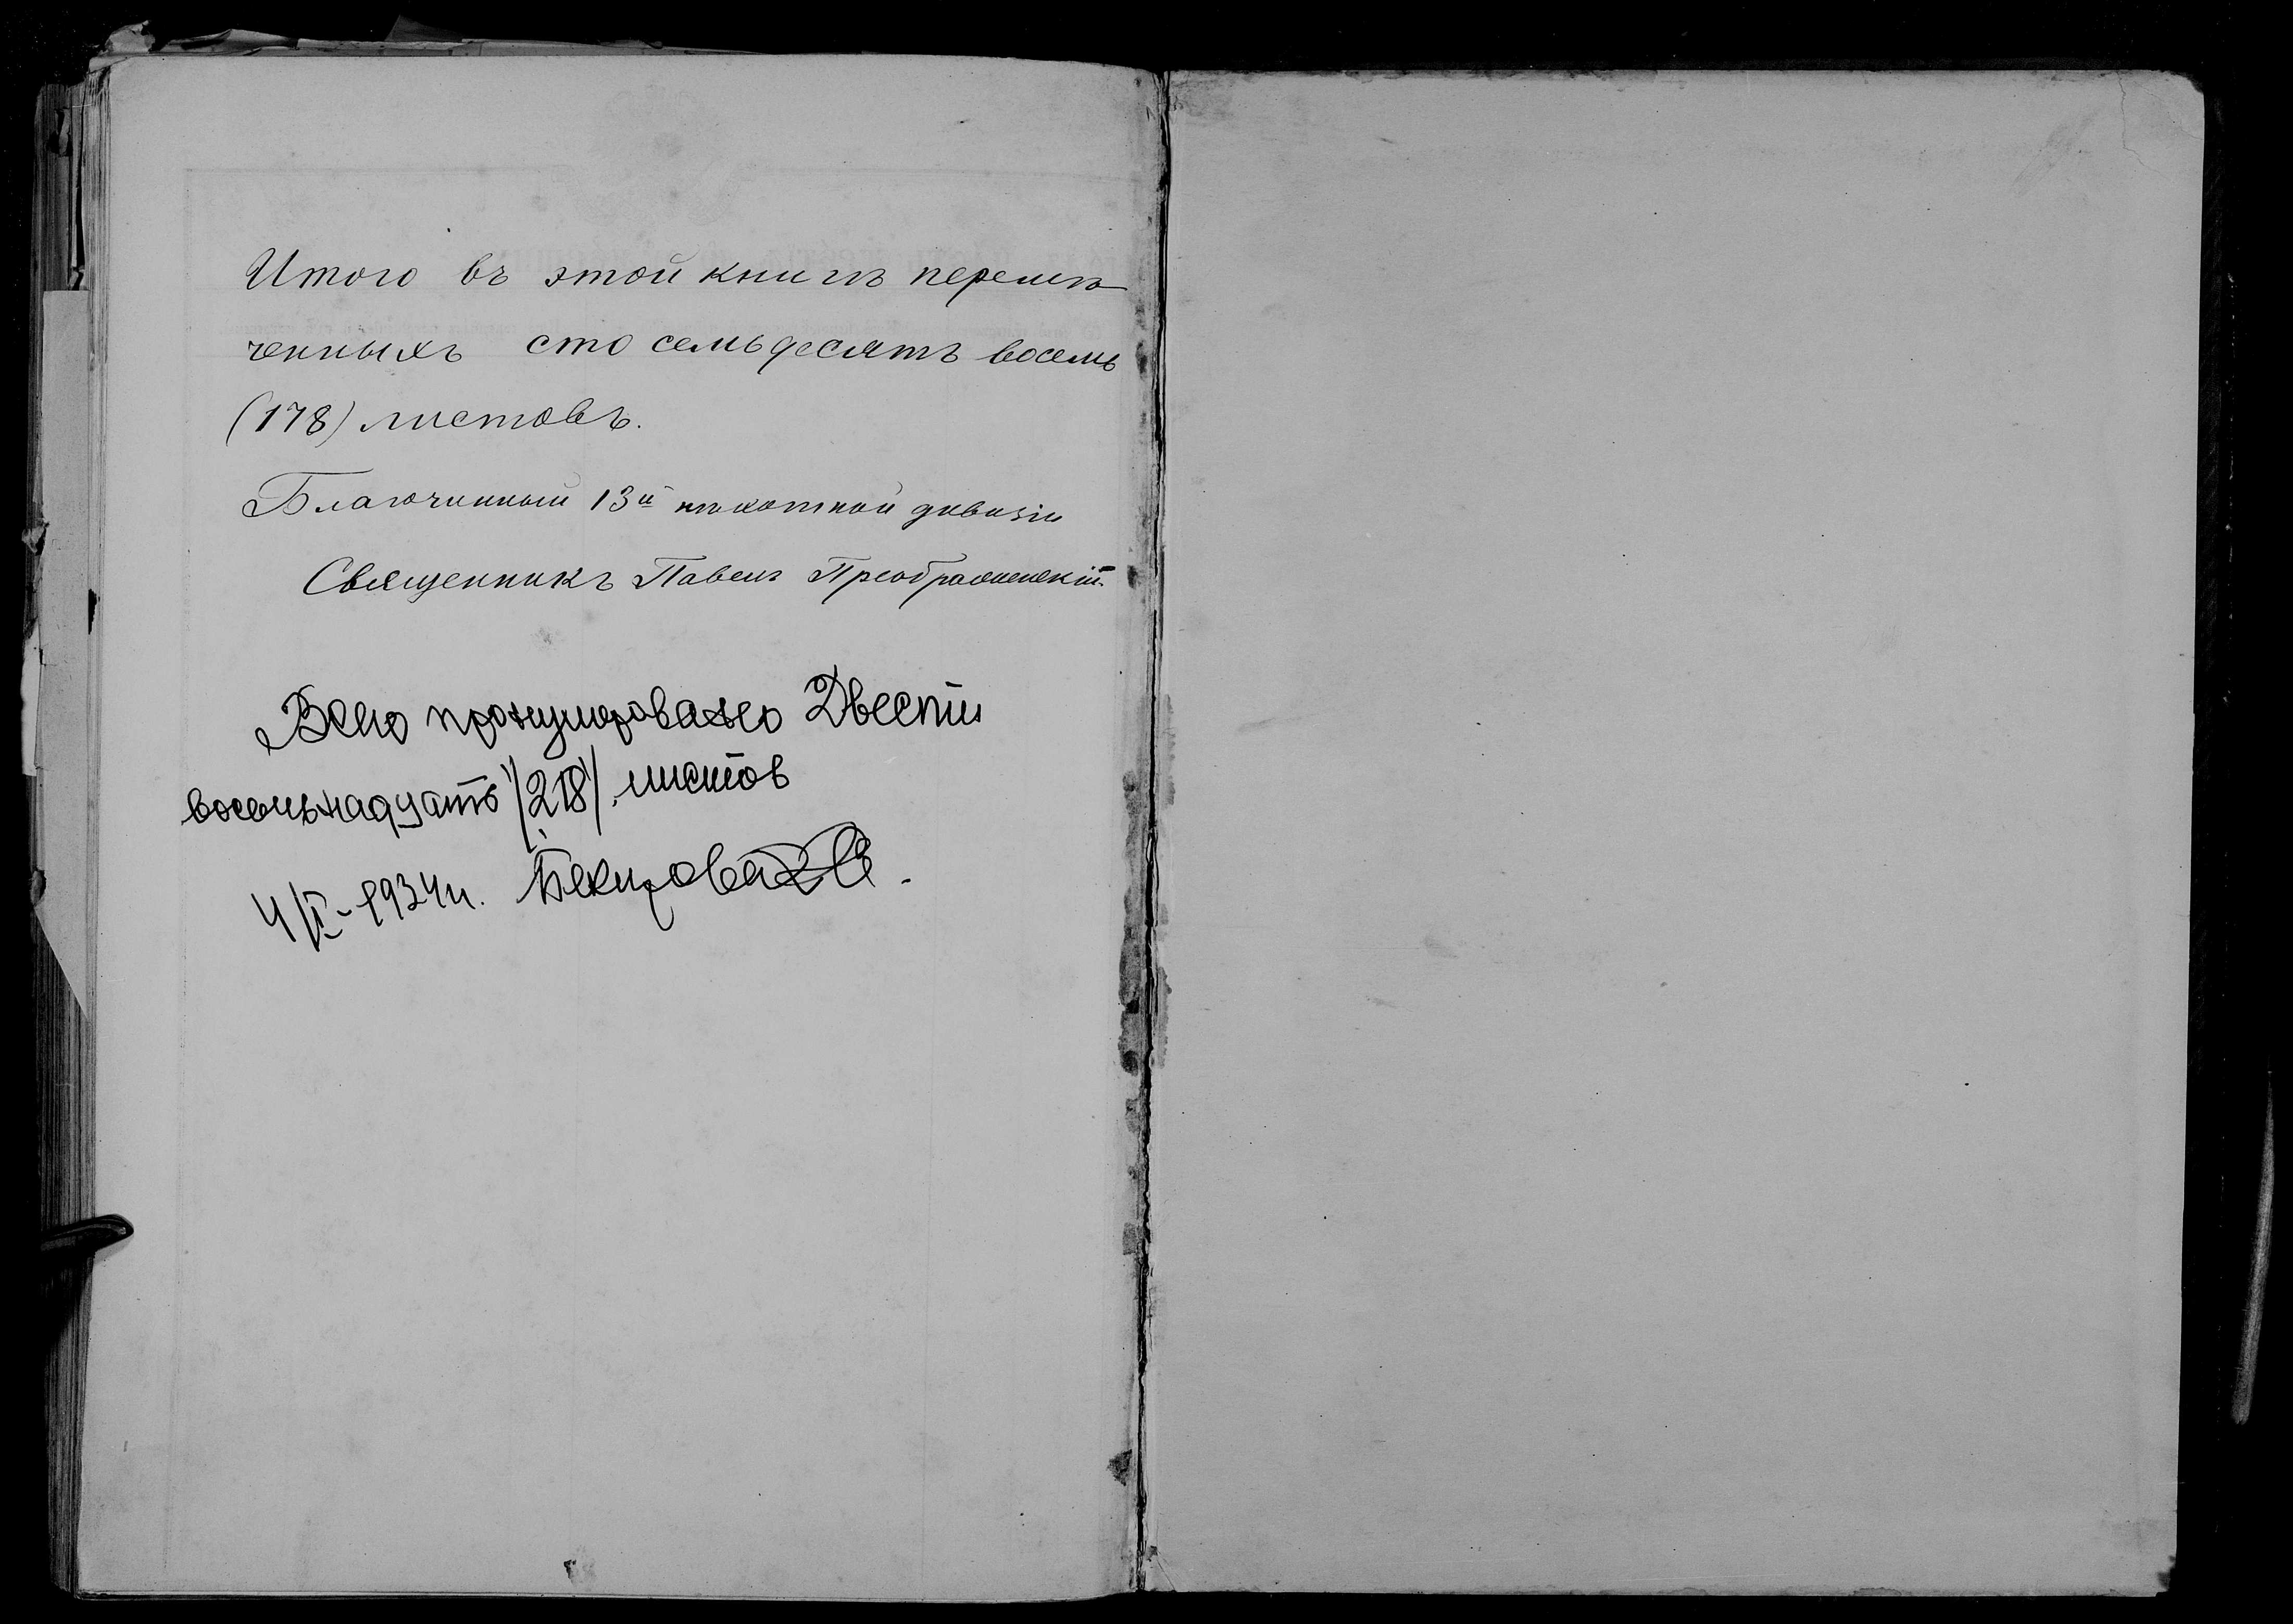 Итого въ этой книгѣ перемѣ
ченныхъ сто семьдесятъ восемь
(178) листовъ.
Благочинный 13й пѣхотной дивизіи
Священникъ Павелъ Преображенскій
Всего пронумеровано Двести
восемьнадцать /218/ листов
Бекирова